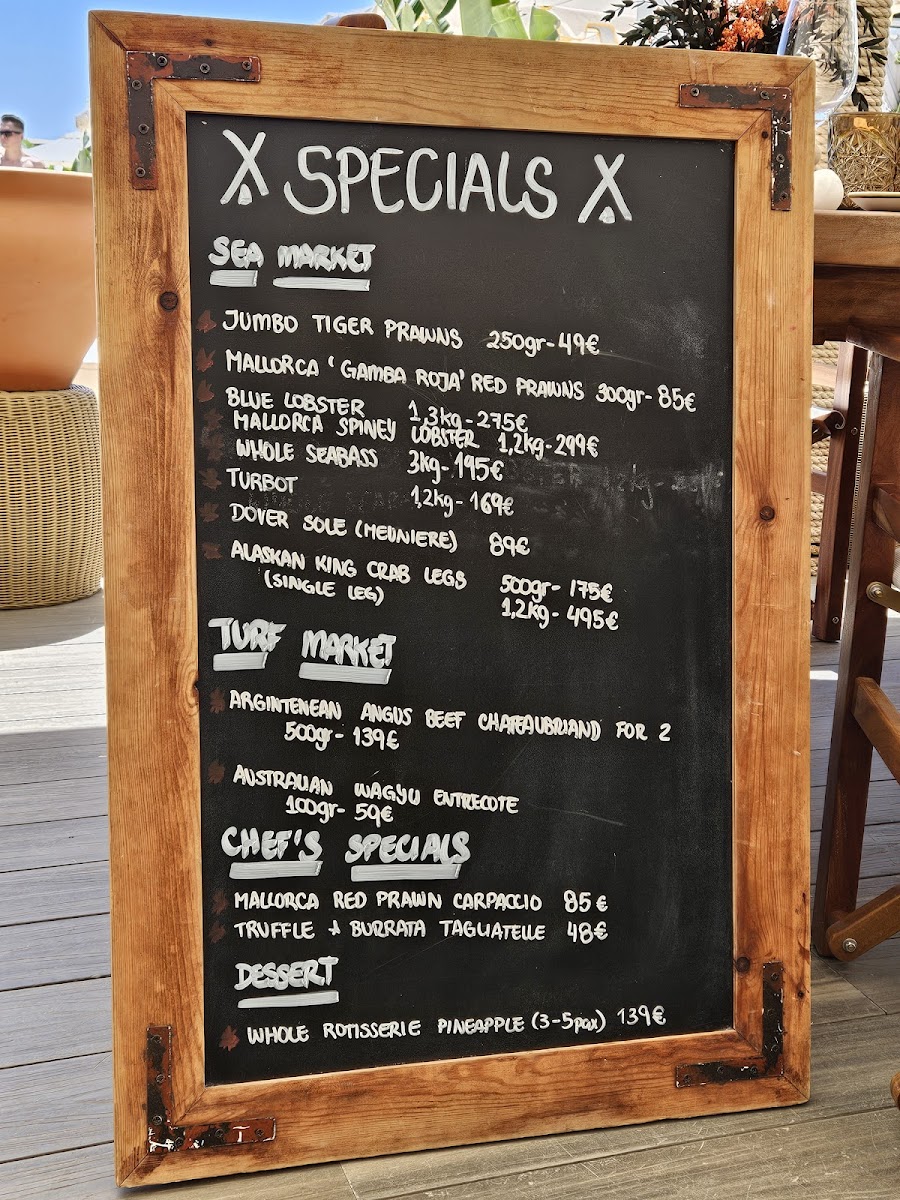 SPECIALS
SEA MARKET
JUMBO TIGER PRAWNS 250gr- 49€
MALLORCA 'GAMBA ROJA' RED PRAWNS 300gr- 85€
BLUE LOBSTER 1,3kg- 275€
MALLORCA SPINEY LOBSTER 1,2kg- 299€
WHOLE SEABASS 3kg- 195€
TURBOT 1,2kg- 169€
DOVER SOLE (MEUNIERE) 89€
ALASKAN KING CRAB LEGS 500gr- 175€
(SINGLE LEG) 1,2kg- 495€
TURF MARKET
ARGINTENEAN ANGUS BEEF CHATEAUBRIAND FOR 2
500gr- 139€
AUSTRALIAN WAGYU ENTRECOTE
100gr- 59€
CHEF'S SPECIALS
MALLORCA RED PRAWN CARPACCIO 85€
TRUFFLE & BURRATA TAGLIATELLE 48€
DESSERT
WHOLE ROTISSERIE PINEAPPLE (3-5pax) 139€